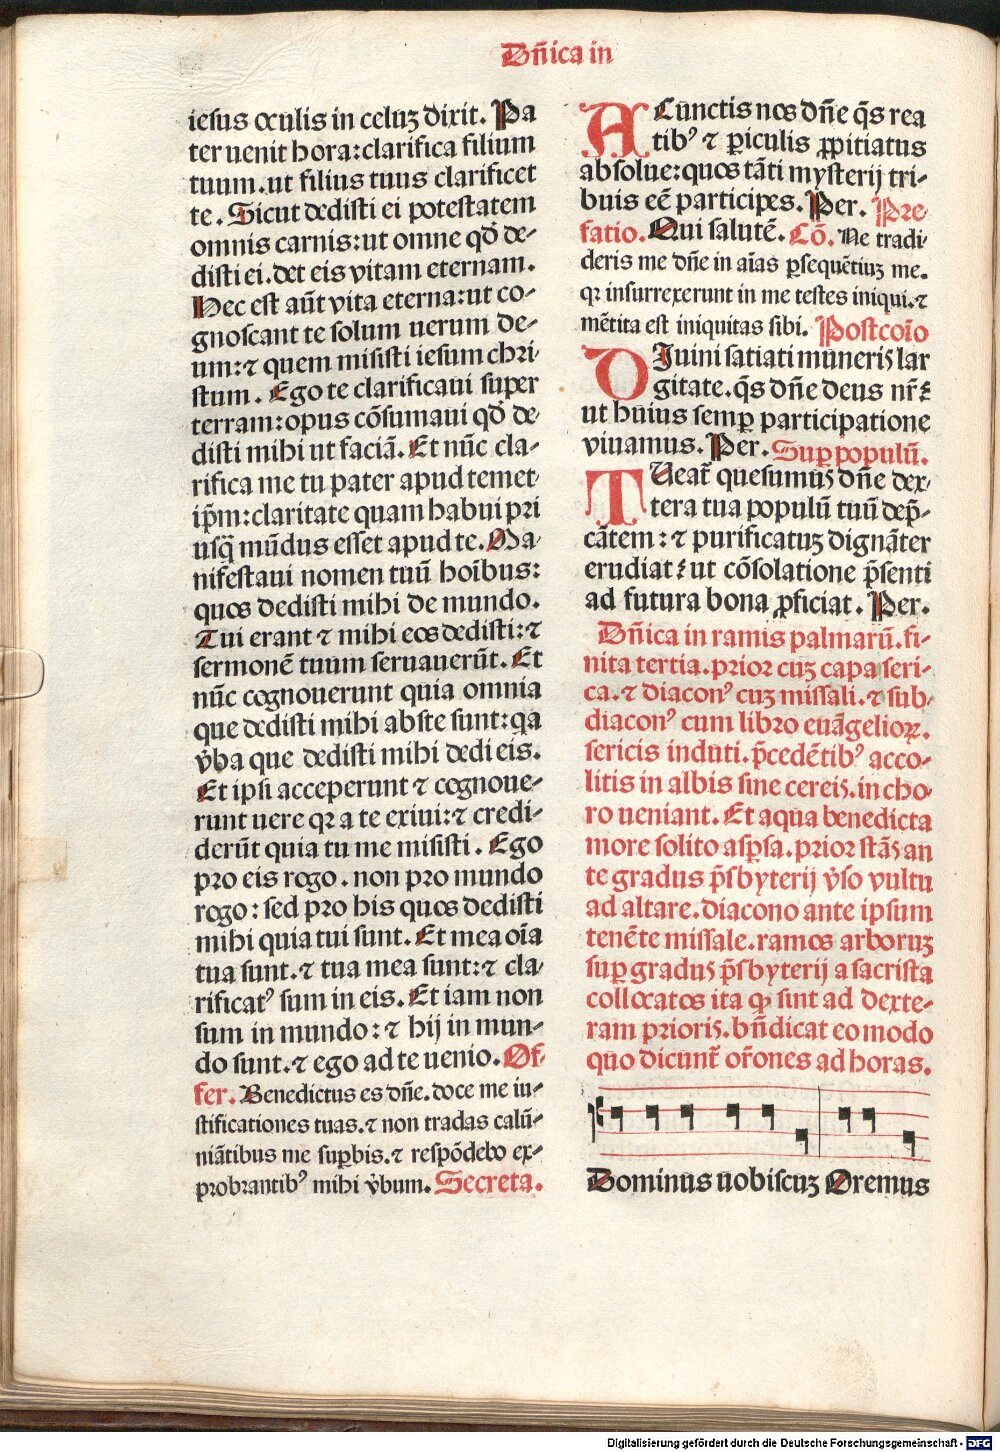 Dñica in
iesus oculis in celuꝫ dixit. Pa
ter uenit hora: clarifica filium
tuum. ut filius tuus clarificet
te. Sicut dedisti ei potestatem
omnis carnis: ut omne qđ de-
disti ei. det eis vitam eternam.
Hec est aūt vita eterna: ut co-
gnoscant te solum uerum de-
um: ⁊ quem misisti iesum chri-
stum. Ego te clarificaui super
terram: opus cōsumaui qđ de-
disti mihi ut faciā. Et nūc cla-
rifica me tu pater apud temet-
ip̄m: claritate quam habui pri
usq̄ mūdus esset apud te. Ma-
nifestaui nomen tuū hoībus:
quos dedisti mihi de mundo.
Tui erant ⁊ mihi eos dedisti: ⁊
sermonē tuum seruauerūt. Et
nūc cognouerunt quia omnia
que dedisti mihi abs te sunt: qa
v̓ba que dedisti mihi dedi eis.
Et ipsi acceperunt ⁊ cognoue-
runt uere qꝛ a te exiui: ⁊ credi-
derūt quia tu me misisti. Ego
pro eis rogo. non pro mundo
rogo: sed pro his quos dedisti
mihi quia tui sunt. Et mea oīa
tua sunt. ⁊ tua mea sunt: ⁊ cla-
rificatꝰ sum in eis. Et iam non
sum in mundo: ⁊ hij in mun-
do sunt. ⁊ ego ad te uenio. Of-
fer. Benedictus es dñe. doce me iu-
stificationes tuas. ⁊ non tradas calū-
niātibus me suꝑbis. ⁊ respōdebo ex-
probrantibꝰ mihi v̓bum. Secreta.
A Cunctis nos dñe q̄s rea
tibꝰ ⁊ ꝑiculis ꝓpitiatus
absolue: quos tāti mysterij tri-
buis eē participes. Per. Pre-
fatio. Qui salutē. Cō. Ne tradi-
deris me dñe in aīas ꝑsequētiuꝫ me.
qꝛ insurrexerunt in me testes iniqui. ⁊
mētita est iniquitas sibi. Postcoīo
D Iuini satiati muneris lar
gitate. q̄s dñe deus nr̄:
ut huius semꝑ participatione
viuamus. Per. Suꝑ populū.
T Ueat̄ quesumus dñe dex-
tera tua populū tuū dep̄-
cātem: ⁊ purificatuꝫ dignāter
erudiat: ut cōsolatione p̄senti
ad futura bona ꝓficiat. Per.
Dñica in ramis palmarū. fi-
nita tertia. prior cuꝫ capa seri-
ca. ⁊ diaconꝰ cuꝫ missali. ⁊ sub-
diaconꝰ cum libro euāgelioꝝ.
sericis induti. p̄cedētibꝰ acco-
litis in albis sine cereis. in cho-
ro ueniant. Et aqua benedicta
more solito asꝑsa. prior stās an
te gradus p̄sbyterij v̓so vultu
ad altare. diacono ante ipsum
tenēte missale. ramos arboruꝫ
suꝑ gradus p̄sbyterij a sacrista
collocatos ita ꝙ sint ad dexte-
ram prioris. bñdicat eo modo
quo dicunt̄ or̄ones ad horas.
Dominus uobiscuꝫ Oremus
Digitalisierung gefördert durch die Deutsche Forschungsgemeinschaft - DFG